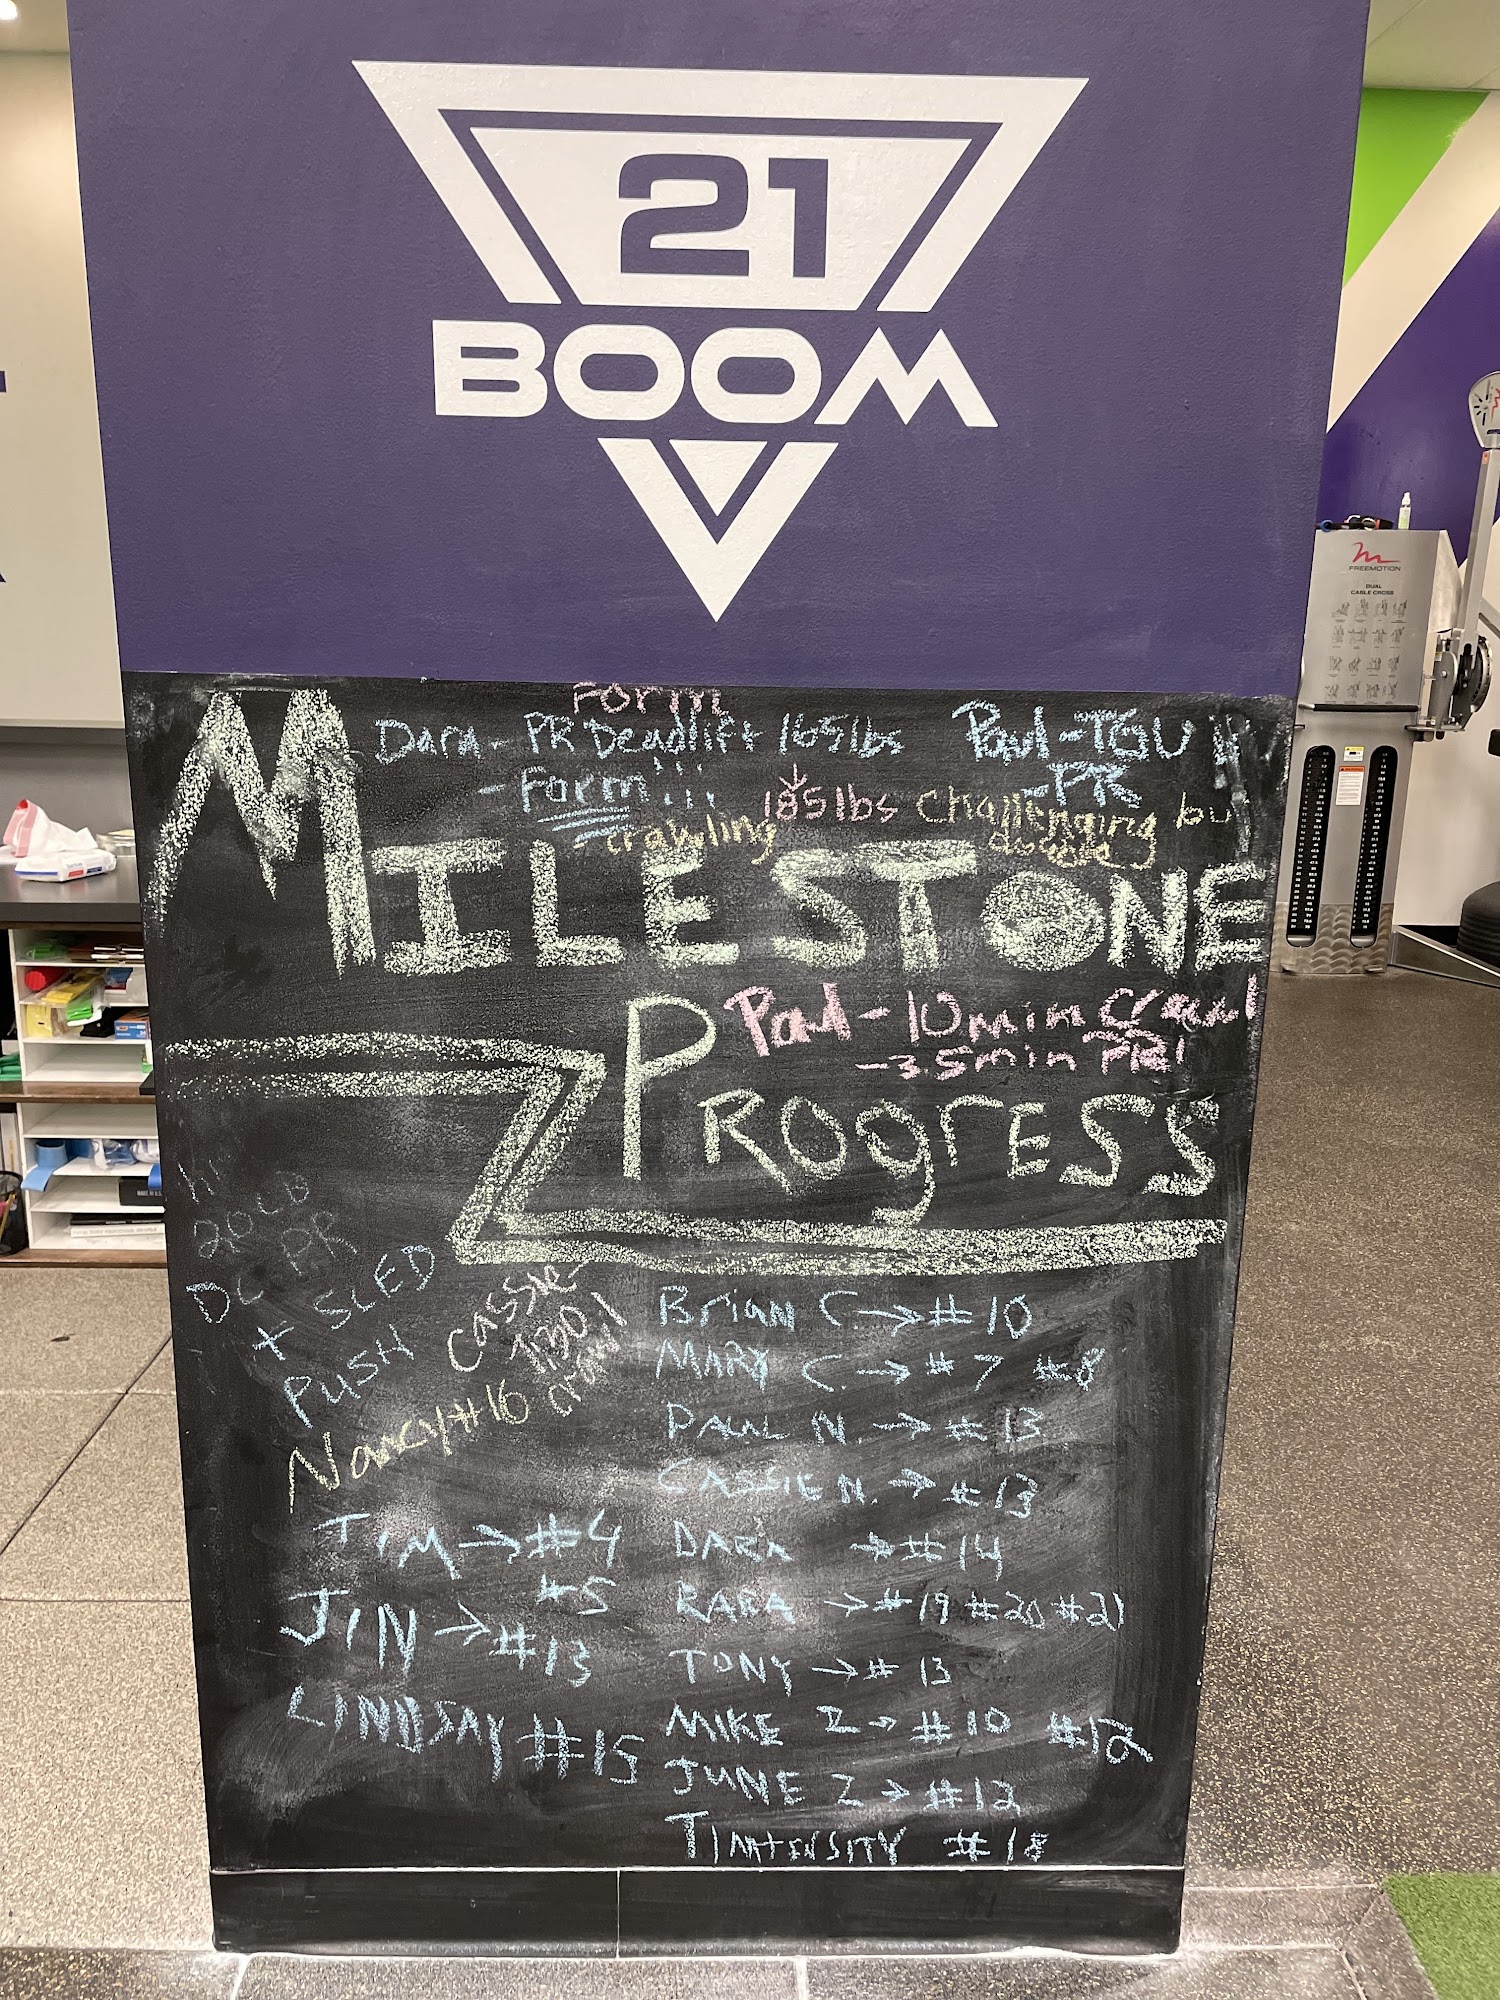 21
BOOM
FORM
Dara - PR Deadlift 165lbs
- Form!!!
185lbs
- crawling
Challenging
Paul - TGU
- PR
MILESTONE
Paul - 10min crawl
- 3.5min PR!
PROGRESS
PR
+ SLED
PUSH
Cassie -
crawl
Nancy #16
TIM → #4
#5
JIN → #13
LINDSAY #15
Brian C. → #10
MARY C. → #7 #8
PAUL N. → #13
CASSIE N. → #13
DARA → #14
RARA → #19 #20 #21
TONY → #13
MIKE Z → #10 #12
JUNE Z → #12
TIMTENSITY #18
FREEMOTION
DUAL
CABLE CROSS